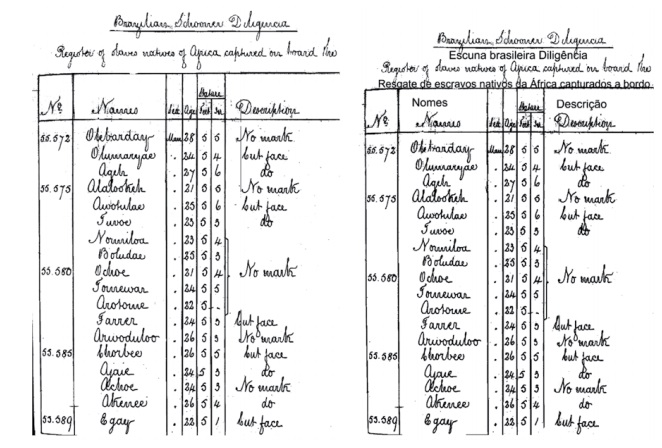 Brazilian Schooner Diligencia
Register of slaves natives of Africa captured on board the
Nº Names Sex Age Stature Feet In. Description
55.572 Okebarday Man 28 5 5 No mark
Olumaryae . 24 5 4 Cut face
Ageh . 27 5 6 do
55.575 Alalookeh . 21 5 5 No mark
Awohulae . 25 5 6 Cut face
Tuvoe . 23 5 3 do
Normiloa . 23 5 4
Boludae . 25 5 3
55.580 Ochoe . 21 5 4 No mark
Forrewar . 24 5 5
Arotome . 22 5 .
Farrer . 24 5 3 Cut face
Arwoduloo . 26 5 3 No mark
55.585 Chorbee . 26 5 5 Cut face
Ajaie . 24 5 3 do
Alchoe . 24 5 3 No mark
Akenee . 26 5 4 do
55.589 Egay . 22 5 1 Cut face
Brazilian Schooner Diligencia
Escuna brasileira Diligência
Register of slaves natives of Africa captured on board the
Resgate de escravos nativos da África capturados a bordo
Nomes Descrição
Nº Names Sex Age Stature Feet In. Description
55.572 Okebarday Man 28 5 5 No mark
Olumaryae . 24 5 4 Cut face
Ageh . 27 5 6 do
55.575 Alalookeh . 21 5 5 No mark
Awohulae . 25 5 6 Cut face
Tuvoe . 23 5 3 do
Normiloa . 23 5 4
Boludae . 25 5 3
55.580 Ochoe . 21 5 4 No mark
Forrewar . 24 5 5
Arotome . 22 5 .
Farrer . 24 5 3 Cut face
Arwoduloo . 26 5 3 No mark
55.585 Chorbee . 26 5 5 Cut face
Ajaie . 24 5 3 do
Alchoe . 24 5 3 No mark
Akenee . 26 5 4 do
55.589 Egay . 22 5 1 Cut face